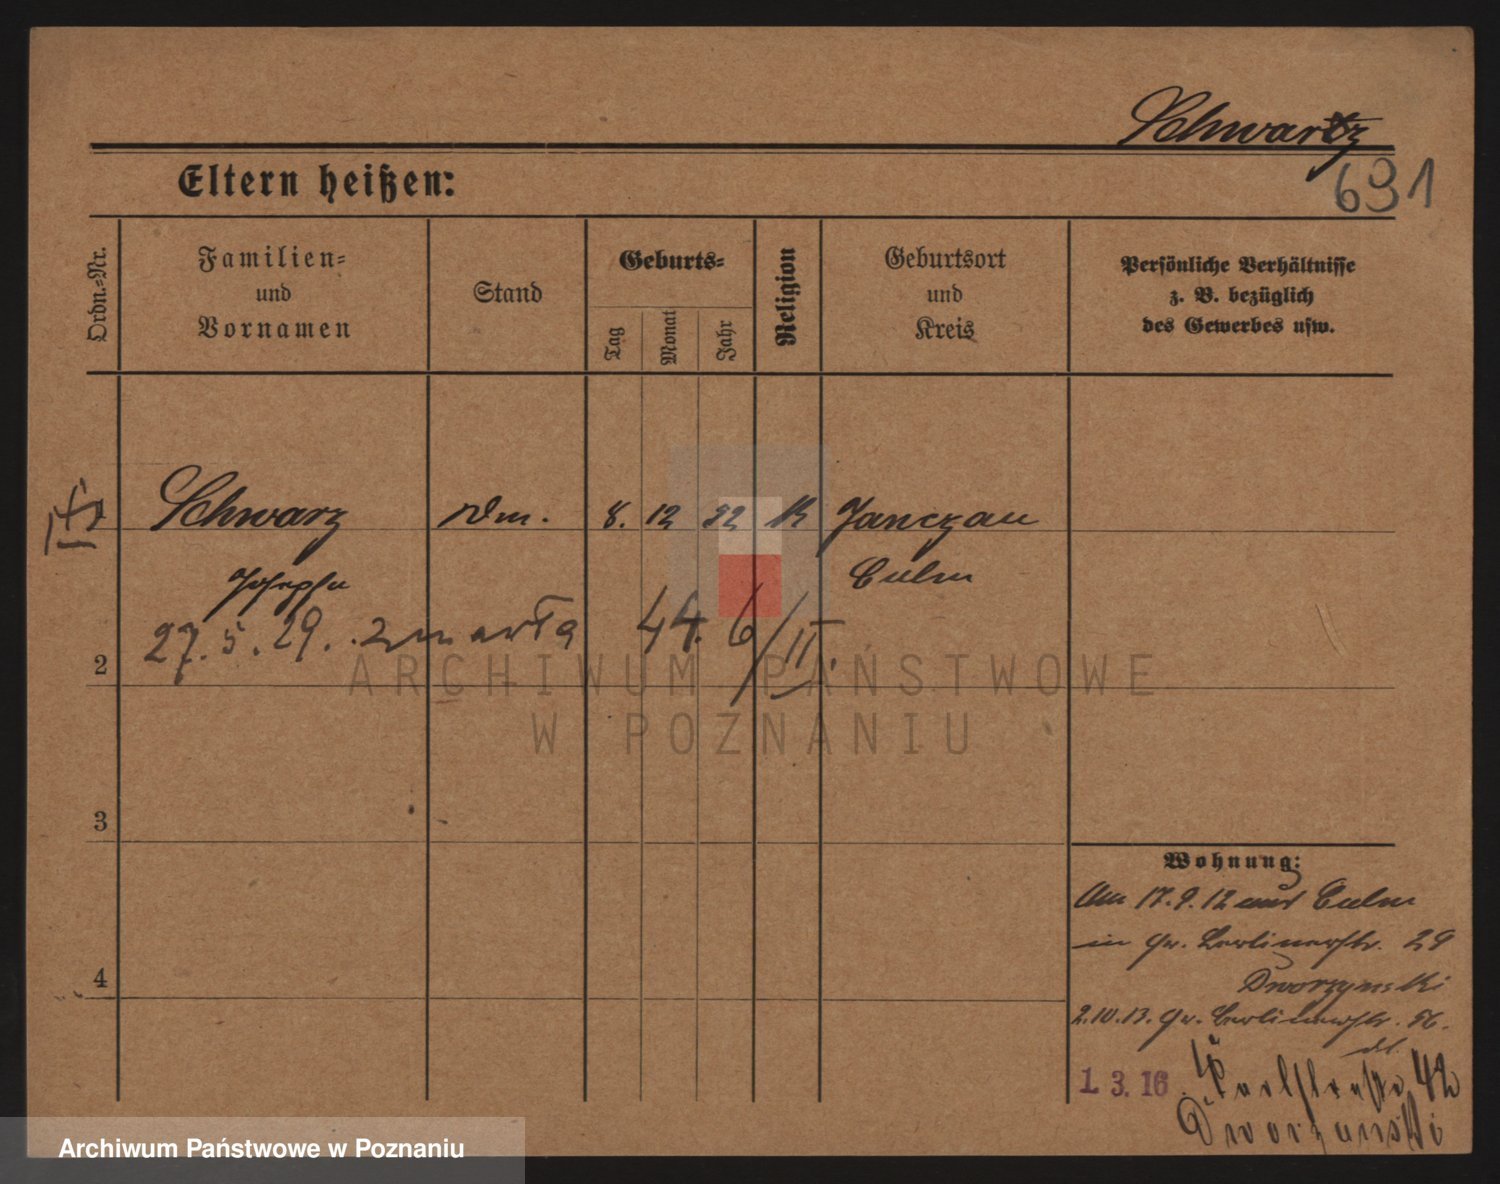 Schwartz
691
Eltern heißen:
Ordn.-Nr.
Familien-
und
Vornamen
Stand
Geburts-
Tag
Monat
Jahr
Religion
Geburtsort
und
Kreis
Persönliche Verhältnisse
z. B. bezüglich
des Gewerbes usw.
Schwarz 8. 12 52 K Janczau
Josepha Culm
27. 5. 29. zmarła 44. 6/II.
2
ARCHIWUM PAŃSTWOWE
W POZNANIU
3
4
Wohnung:
Am 17. 9. 12 aus Culm
in Gr. Berlinerstr. 29
Dworzynski
2.10.13. Gr. Berlinerstr. 56.
1. 3. 16. 42
Dworzynski
Archiwum Państwowe w Poznaniu